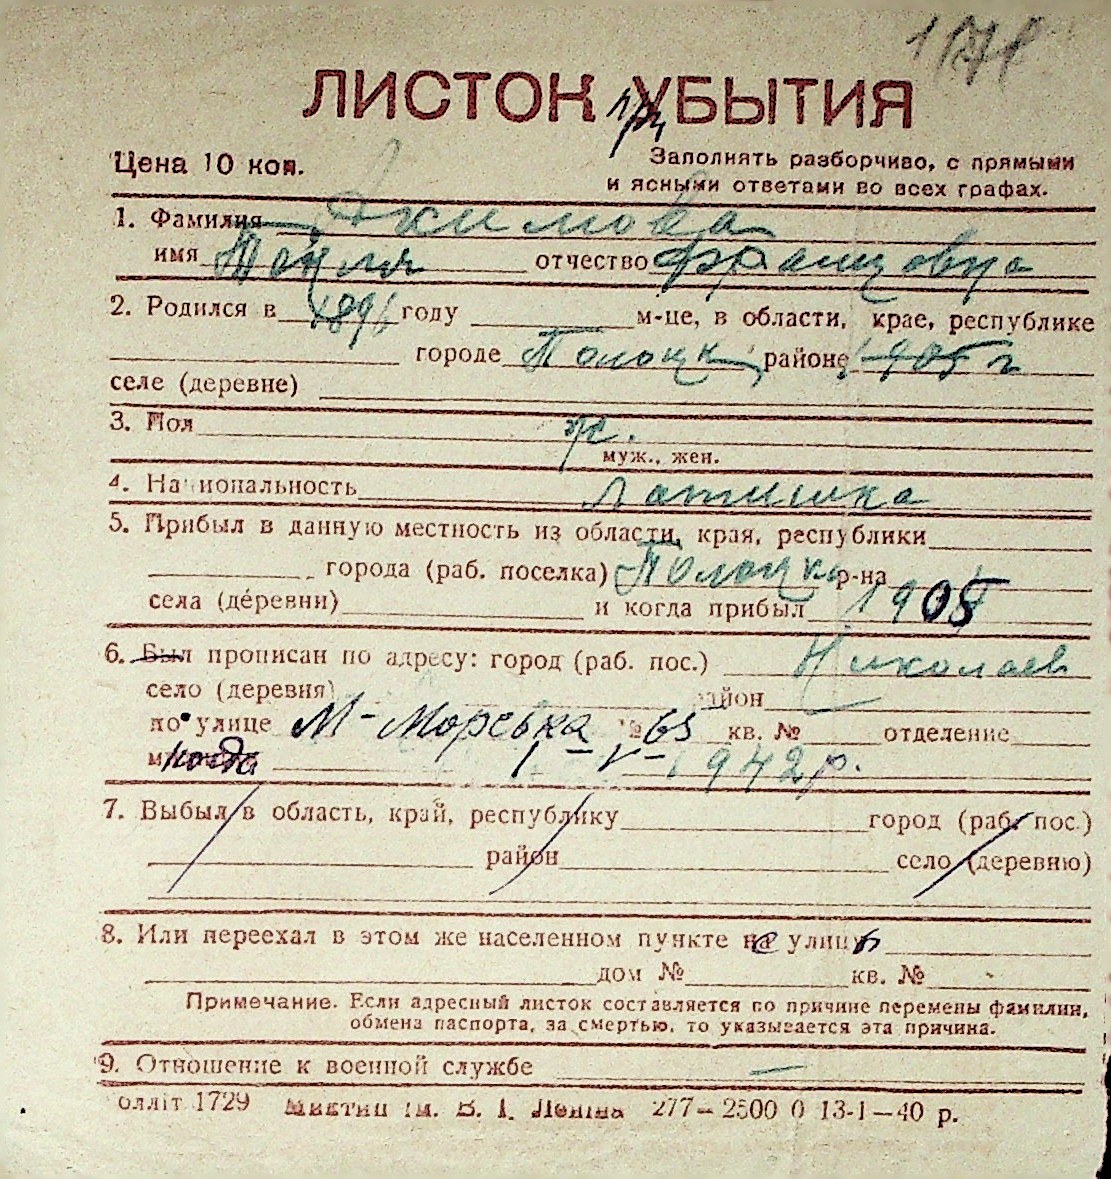 ЛИСТОК УБЫТИЯ
Цена 10 коп.
Заполнять разборчиво, с прямыми
и ясными ответами во всех графах.
1. Фамилия Акимова
имя отчество Францовна
2. Родился в 1896 году м-це, в области, крае, республике
городе Полоцк, районе 1905 г
селе (деревне)
3. Пол ж.
муж., жен.
4. Национальность Латишка
5. Прибыл в данную местность из области, края, республики
города (раб. поселка) Полоцк р-на
села (деревни) и когда прибыл 1905
6. Был прописан по адресу: город (раб. пос.) Николаев
село (деревня) район
по улице М-Морська № 65 кв. № отделение
когда 1-V-1942 р.
7. Выбыл в область, край, республику город (раб. пос.)
район село (деревню)
8. Или переехал в этом же населенном пункте с улицы
дом № кв. №
Примечание. Если адресный листок составляется по причине перемены фамилии,
обмена паспорта, за смертью, то указывается эта причина.
9. Отношение к военной службе —
олліт 1729 ім. В. І. Леніна 277—2500 0 13-1—40 р.